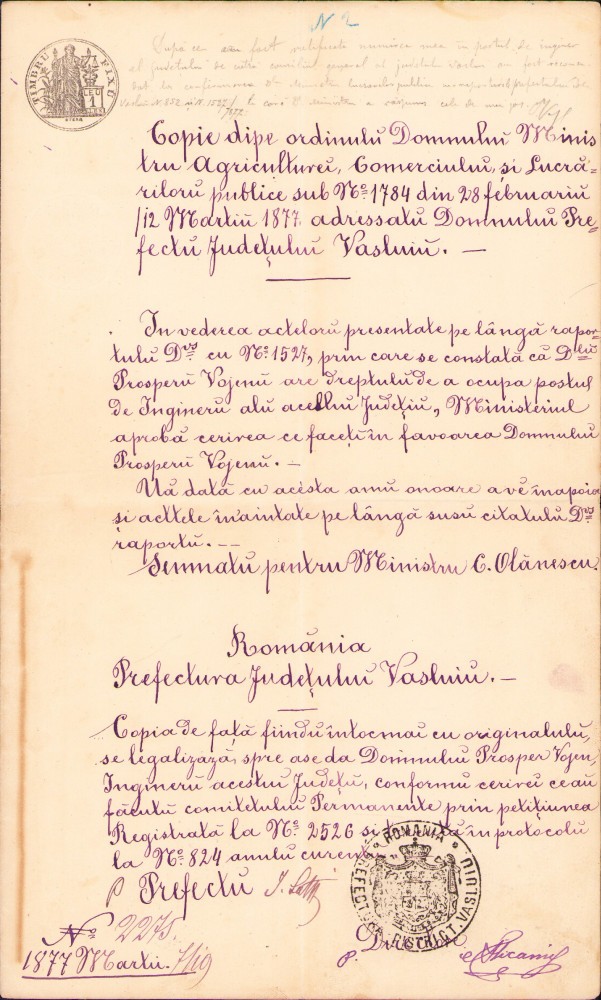 N 2
TIMBRU FIX
LEU 1
După ce am fost
al județului de către consiliul general al județului Vaslui am fost
Copie dipe ordinulu Domnului Minis
tru Agriculturei, Comerciului, și Lucră=
riloru publice sub No 1784 din 28 februariu
/12 Martiu 1877 adressatu Domnului Pre=
fectu Județului Vasluiŭ. —
In vederea acteloru presentate pe lângă rapor=
tulu Dvs cu No 1527, prin care se constată că Dlui
Prosperŭ Vojenu are dreptulu de a ocupa postul
de Ingineru alu acestui Județiu, Ministeriul
aprobă cerirea ce faceți în favoarea Domnului
Prosperŭ Vojenŭ. —
Uă dată cu acesta amu onoare a vĕ înapoia
și acttele înaintate pe lângă susu citatulu Dvs
raportu. —
Semnatu pentru Ministru C. Olănescu.
România
Prefectura Județului Vasluiŭ. —
Copia de față fiindu întocmai cu originalulu,
se legalizază, spre a se da Domnului Prosper Vojen,
Ingineru acestui Județu, conformu cerirei ce au
făcutu comitetului Permanente prin petițiunea
Registrată la No 2526 și în protocolu
la No 824 anului curent
p Prefectu
ROMANIA
PREFECTURA DISTRICT. VASLUIU
No 2275.
1877 Martii. 7/19
p.